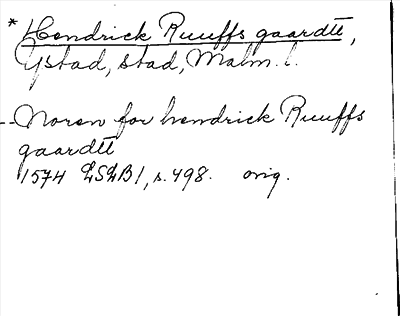 * Hendrick Ruuffs gaardtt,
Ystad, stad, Malm. l.
-- Noren for hendrick Ruuffs
gaardtt
1574 LSLB1, s. 498. orig.